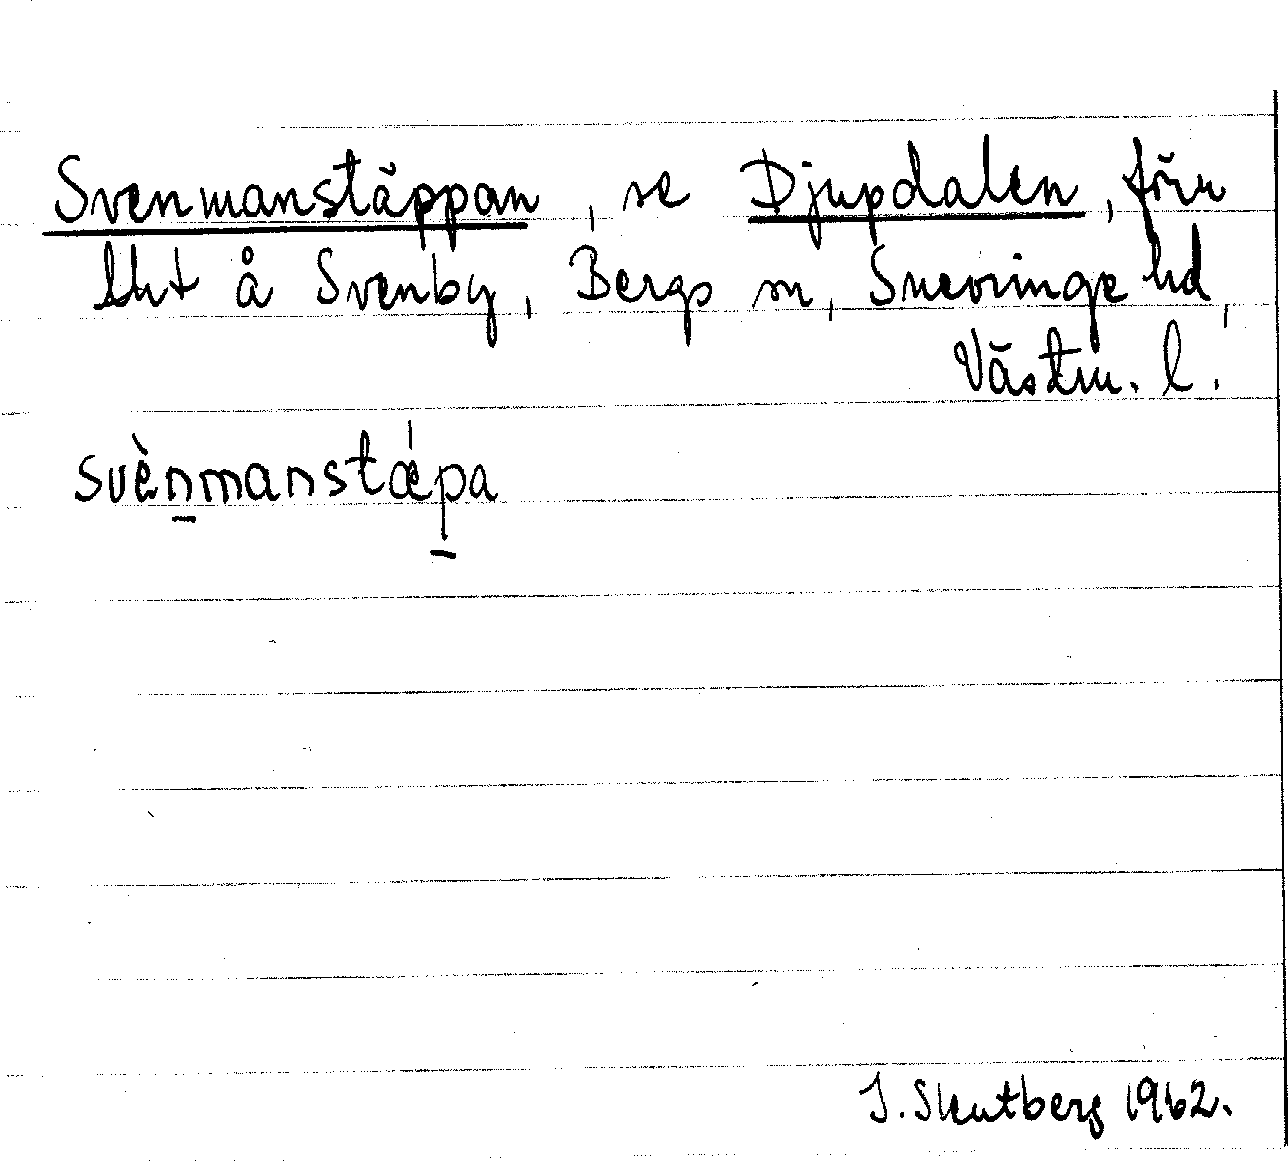 Svenmanstäppan, se Djupdalen, förr
lht å Svenby, Bergs sn, Snevringe hd,
Västm. l.
svènmanstǽpa
J. Skutberg 1962.